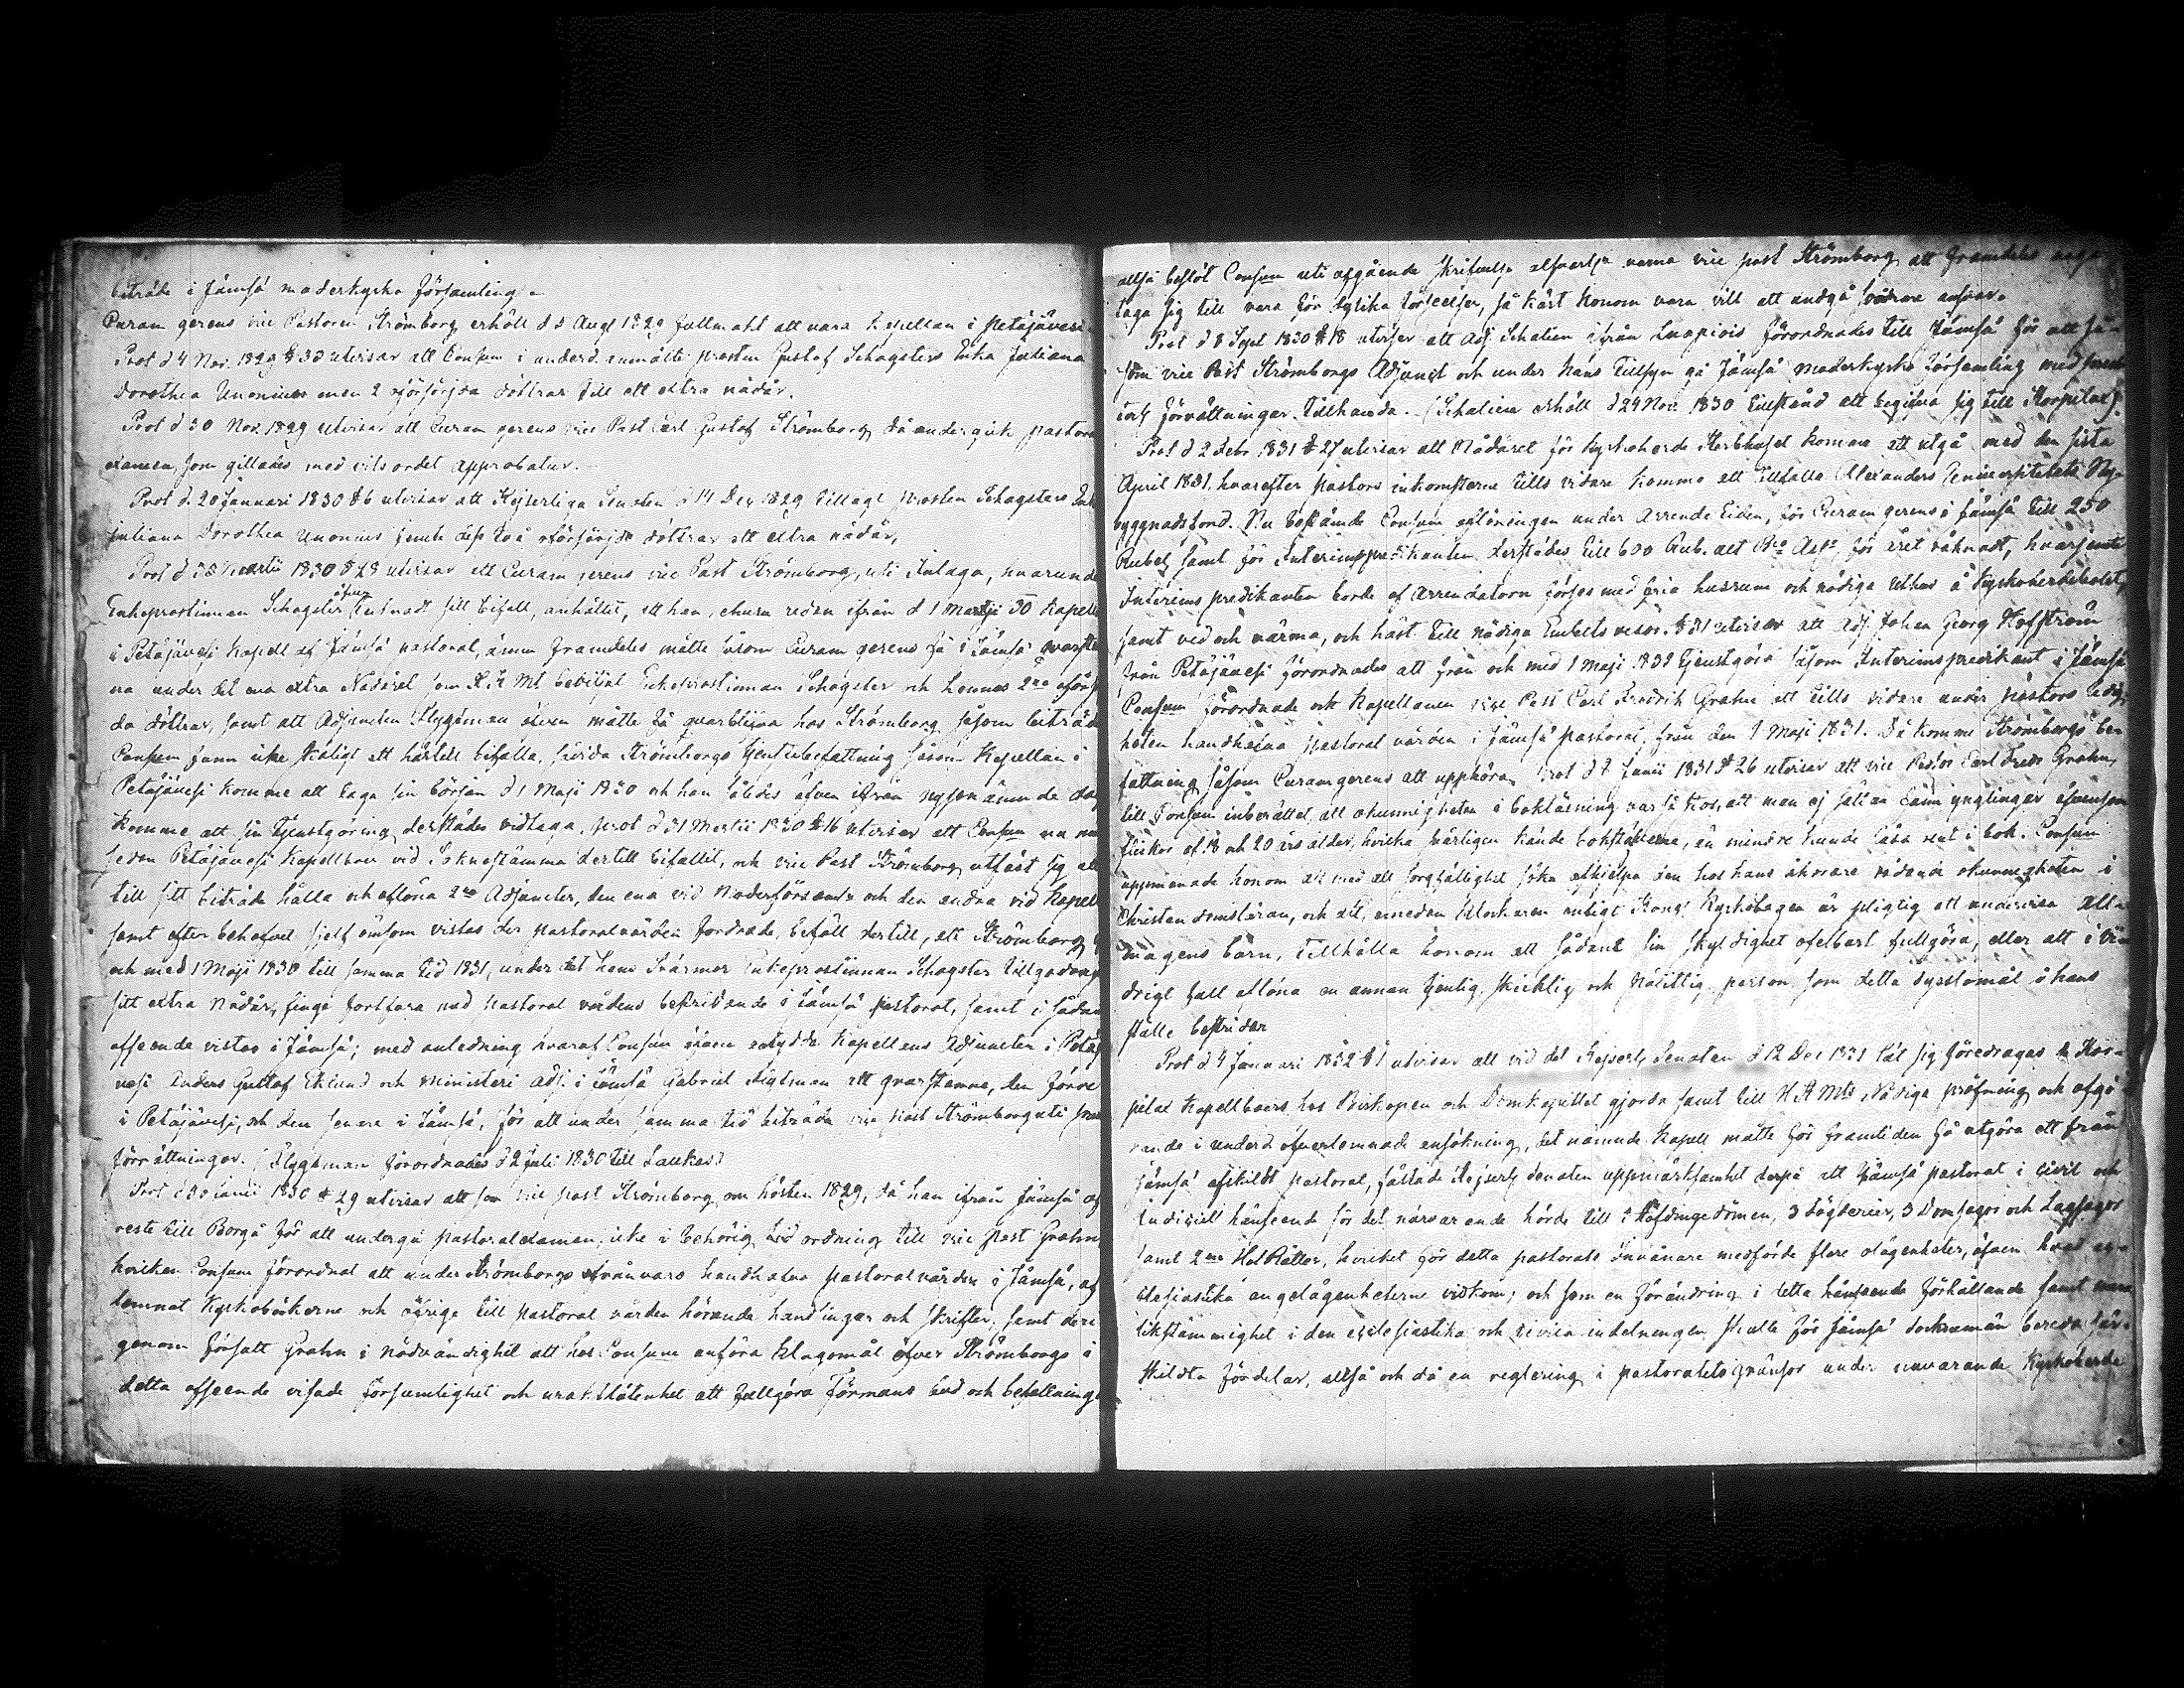 biträde i Jämsä moderkyrko församling.
Curam gerens vice Pastoren Strömborg erhöll d 5 Augl 1829 fullmakt att vara kapellan i Petäjävesi
Prot d 4 Nov. 1829 § 30 utvisar att Consum i underd. anmälte prosten Gustaf Schogsters Enka Juliana
Dorothea Unonius men 2 oförsörjda döttrar till ett extra nådår.
Prot d 30 Nov. 1829 utvisar att Curam gerens vice Past Carl Gustaf Strömborg då undergick pastoral
examen, som gillades med vitsordet approbatur.
Prot d. 20 Januari 1830 § 6 utvisar att Kejserliga Senaten d 14 Dec 1829 tillagt prosten Schogsters Enka
Juliana Dorothea Unonius jemte dess två oförsörjda döttrar ett extra nådår,
Prot d Martii 1830 § 28 utvisar att Curam gerens vice Past Strömborg, uti Inlaga, hvarunder
Enkeprostinnan Schogster äfven tecknadt sitt bifall, anhållit, att han, ehuru redan ifrån d 1 Maji 30 Kapellan
i Petäjävesi Kapell af Jämsä pastorat, ännu framdeles måtte såsom Curam gerens få i Jämsä qvarstan
na under det ena extra Nådåret som K. Mt. beviljat Enkeprostinnan Schogster och hennes 2ne oförsörj
da döttrar, samt att Adjuncten Flygeman äfven måtte få qvarblifva hos Strömborg såsom biträde
Consum fann icke skäligt att härtill bifalla, hvida Strömborgs tjenstebefattning såsom Kapellan i
Petäjävesi komme att taga sin början d 1 Maji 1830 och han således äfven ifrån nyssnämnde dag
komme att sin tjenstgöring derstädes vidtaga. Prot d 31 Martii 1830 § 16 utvisar att Consum nu me
sedan Petäjävesi Kapellboer vid Sokneståmma dertill bifallit, och vice Past Strömborg utfäst sig att
till sitt biträde hålla och aflöna 2ne Adjuncter, den ena vid Moderförsaml. och den andra vid Kapell
samt efter behofvet sjelf ömsom vistas der pastoralvården fordrade, biföll dertill, att Strömborg
och med 1 Maji 1830 till samma tid 1831, under det hans Svärmor Enkeprostinnan Schogster tillgodonjöt
sitt extra Nådår, finge fortfara med Pastoral vårdens bestridande i Jämsä pastorat, samt i sådant
afseende vistas i Jämsä; med anledning hvaraf Consum äfven antydde Kapellans Adjuncten i Petäjä
vesi Anders Gustaf Eklund och Ministeri adj. i Jämsä Gabriel Flygeman att qvarstanna, den förre
i Petäjävesi, och den senare i Jämsä, för att under samma tid biträda vice Past Strömborg uti prest
förrättningar. (Flygeman förordnades d 2 Juli 1830 till Laukas)
Prot d 30 Junii 1830 § 29 utvisar att som vice past Strömborg om hösten 1829, då han ifrån Jämsä af
reste till Borgå för att undergå pastoralexamen, icke i behörig tid ordning till vice past Grahn
hvilken Consum förordnat att under Strömborgs frånvaro handhafva pastoralvården i Jämsä, af
lemnat Kyrkoböckerne och öfrige till pastoral vården hörande handlingar och skrifter, samt der
igenom försatt Grahn i nödvändighet att hos Consum anföra klagomål öfver Strömborgs i
detta afseende visade försumlighet och uraktlåtenhet att fullgöra Förmans bud och befallning
altså beslöt Consum uti afgående skrifvelse alfvarlig varna vice past Strömborg att framdeles noga
taga sig till vara för dylika förseelser, så kärt honom vara vill att undgå svårare ansvar.
Prot d 8 Sept 1830 § 18 utviser att Adj Schalien ifrån Luopiois förordnades till Jämsä för att så-
som vice Past Strömborgs Adjunct och under hans tillsyn gå Jämsä moderkyrko församling med prest
erlig förrättningar tillhanda. (Schalien erhöll d 24 Nov 1830 tillstånd att begifva sig till Korpilax).
Prot d 2 Febr 1831 § 27 utvisar att Nådåret för kyrkoherde Sterbhuset komme att utgå med den sista
April 1831. hvarefter pastors inkomsterna tills vidare komme att tillfalla Alexanders Universitetets Ny-
byggnadsfond. Nu bestämde Consum aflöningen under Arrende tiden, för Curam gerens i Jämsä till 250
Rubel samt för Interimspredikanten derstädes till 600 Rub. allt Bco Asse, för året räknadt, hvarjemte
Interims predikanten borde af Arrendatorn förses med fria husrum och nödiga Uthus å Kyrkoherdebolet,
samt ved och värma, och häst till nödiga Embets resor. § 31 utvisar att Adj Johan Georg Hofström
från Petäjävesi förordnades att från och med 1 Maji 1831 tjenstgöra såsom Interimspredikant i Jämsä
Consum förordnade ock Kapellanen vice Past Carl Fredrik Grahn att tills vidare under pastors ledig
heten handhafva pastoral vården i Jämsä pastorat, från den 1 Maji 1831. Då komme Strömborgs be-
fattning såsom Curam gerens att upphöra. Prot d 7 Junii 1831 § 26 utvisar att vice Pastor Carl Fredr Grahn
till Consum inberättat, att okunnigheten i bokläsning var så stor, att man ej sällan fann ynglingar äfvensom
flickor af 18 och 20 års ålder, hvilka svårligen kände bokstäfverna, än mindre kunde läsa rent i bok. Consum
uppmanade honom att med all sorgfällighet söka afhjelpa den hos hans åhörare rådande okunnigheten i
Christendomsläran, och att, emedan klockaren enligt Kongl Kyrkolagen är pligtig att undervisa All-
mogens barn, tillhålla honom att sådant sin skyldighet ofelbart fullgöra, eller att i vi-
drigt fall aflöna en annan tjenlig, skicklig och skälittlig person som detta sysslomål å hans
ställe bestrider
Prot d 4 Januari 1832 § 1 utvisar att vid det Kejserl Senaten d 12 Dec 1831 låt sig föredragas Kor-
pilax Kapellboers hos Biskopen och Domkapitlet gjorde samt till H K Mts Nådiga pröfning och afgö
rande i underd öfverlemnade ansökning, det nämnde Kapell måtte för framtiden få utgöra ett från
Jämsä afskildt pastorat, fästade Kejserl Senaten uppmärksamhet derpå att Jämsä pastorat i civil och
judiciell hänseende för det närvarande hörde till 2 Höfdingedömen, 3 fögderier, 3 Domsagor och Lagsagor
samt 2ne HofRätter, hvilket för detta pastorats Invånare medförde flere olägenheter, äfven hvad ec-
clesiastika angelägenheterne vidkom; och som en förändring i detta hänseende förhållande samt mera
likstämmighet i den ecclesiastika och civila indelningen skulle för Jämsä socknemän bereda sär-
skildta fördelar, altså och då en reglering i pastoratets gränsor under nuvarande Kyrkoherde